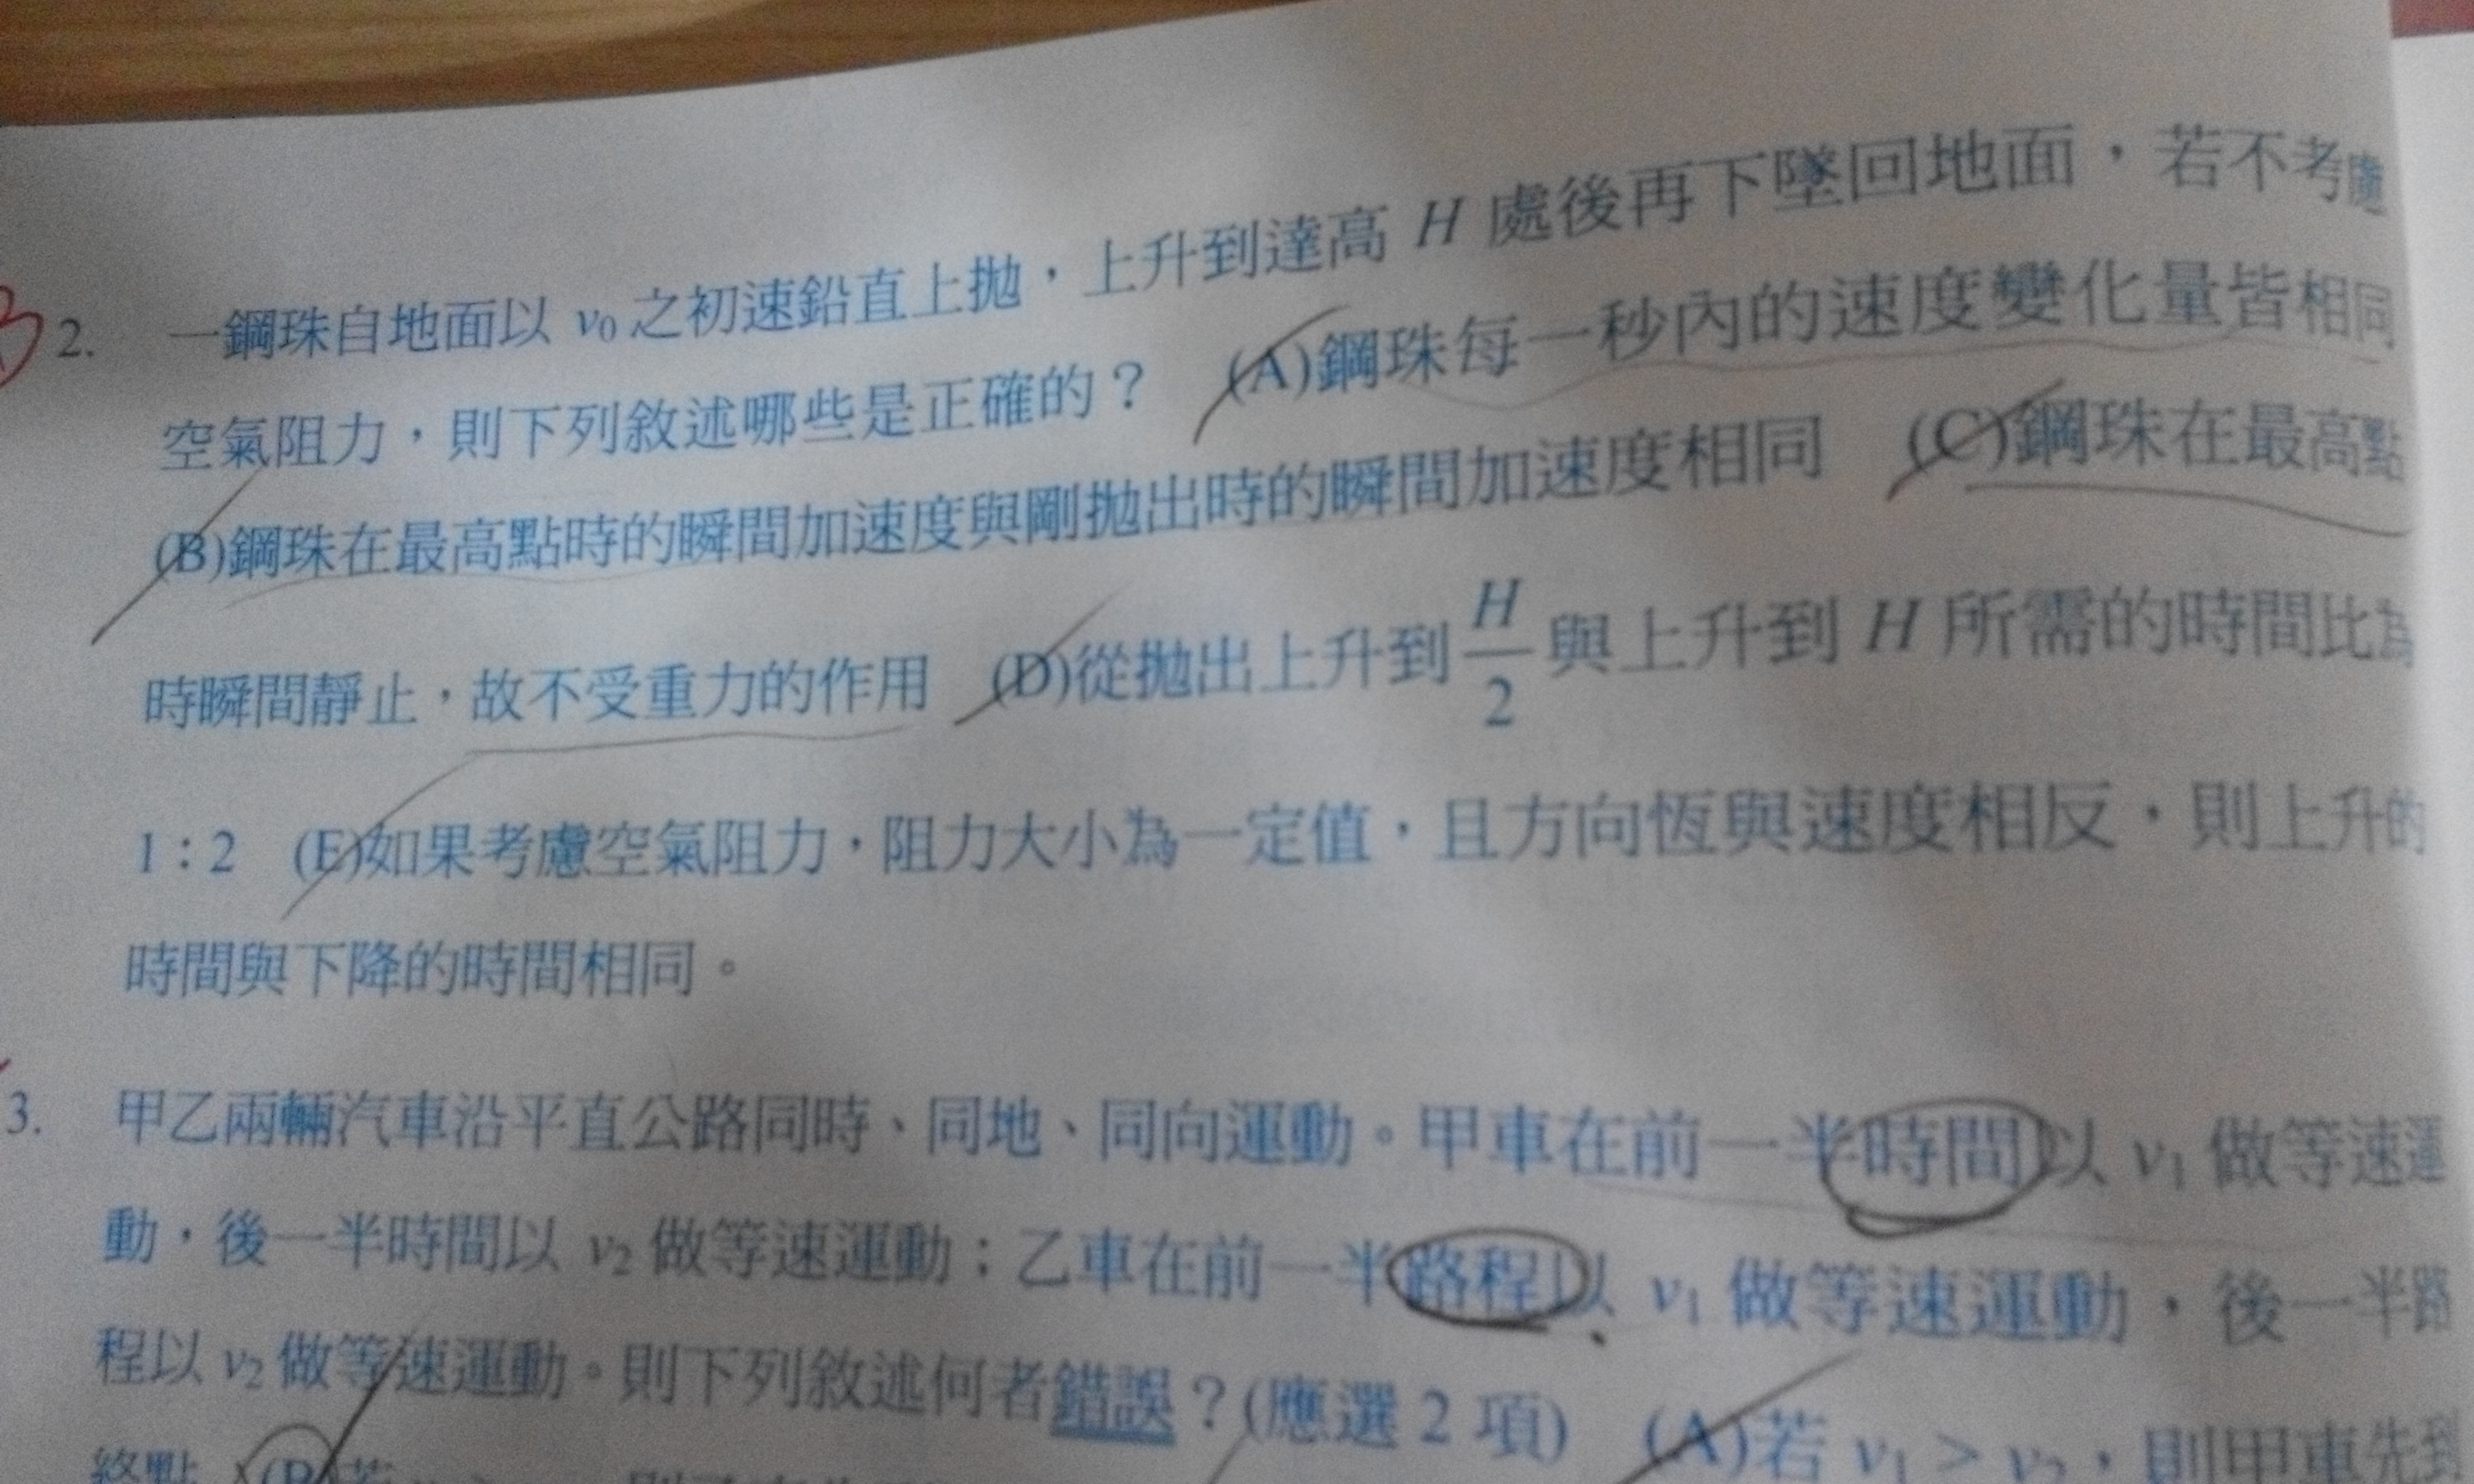 2. 一鋼珠自地面以 v₀ 之初速鉛直上拋，上升到達高 H 處後再下墜回地面，若不考慮
空氣阻力，則下列敘述哪些是正確的？ (A)鋼珠每一秒內的速度變化量皆相同
(B)鋼珠在最高點時的瞬間加速度與剛拋出時的瞬間加速度相同 (C)鋼珠在最高點
時瞬間靜止，故不受重力的作用 (D)從拋出上升到 H/2 與上升到 H 所需的時間比為
1：2 (E)如果考慮空氣阻力，阻力大小為一定值，且方向恆與速度相反，則上升的
時間與下降的時間相同。
3. 甲乙兩輛汽車沿平直公路同時、同地、同向運動。甲車在前一半時間以 v₁ 做等速運
動，後一半時間以 v₂ 做等速運動；乙車在前一半路程以 v₁ 做等速運動，後一半路
程以 v₂ 做等速運動。則下列敘述何者錯誤？(應選 2 項) (A)若 v₁ > v₂，則甲車先到
終點 (B)若